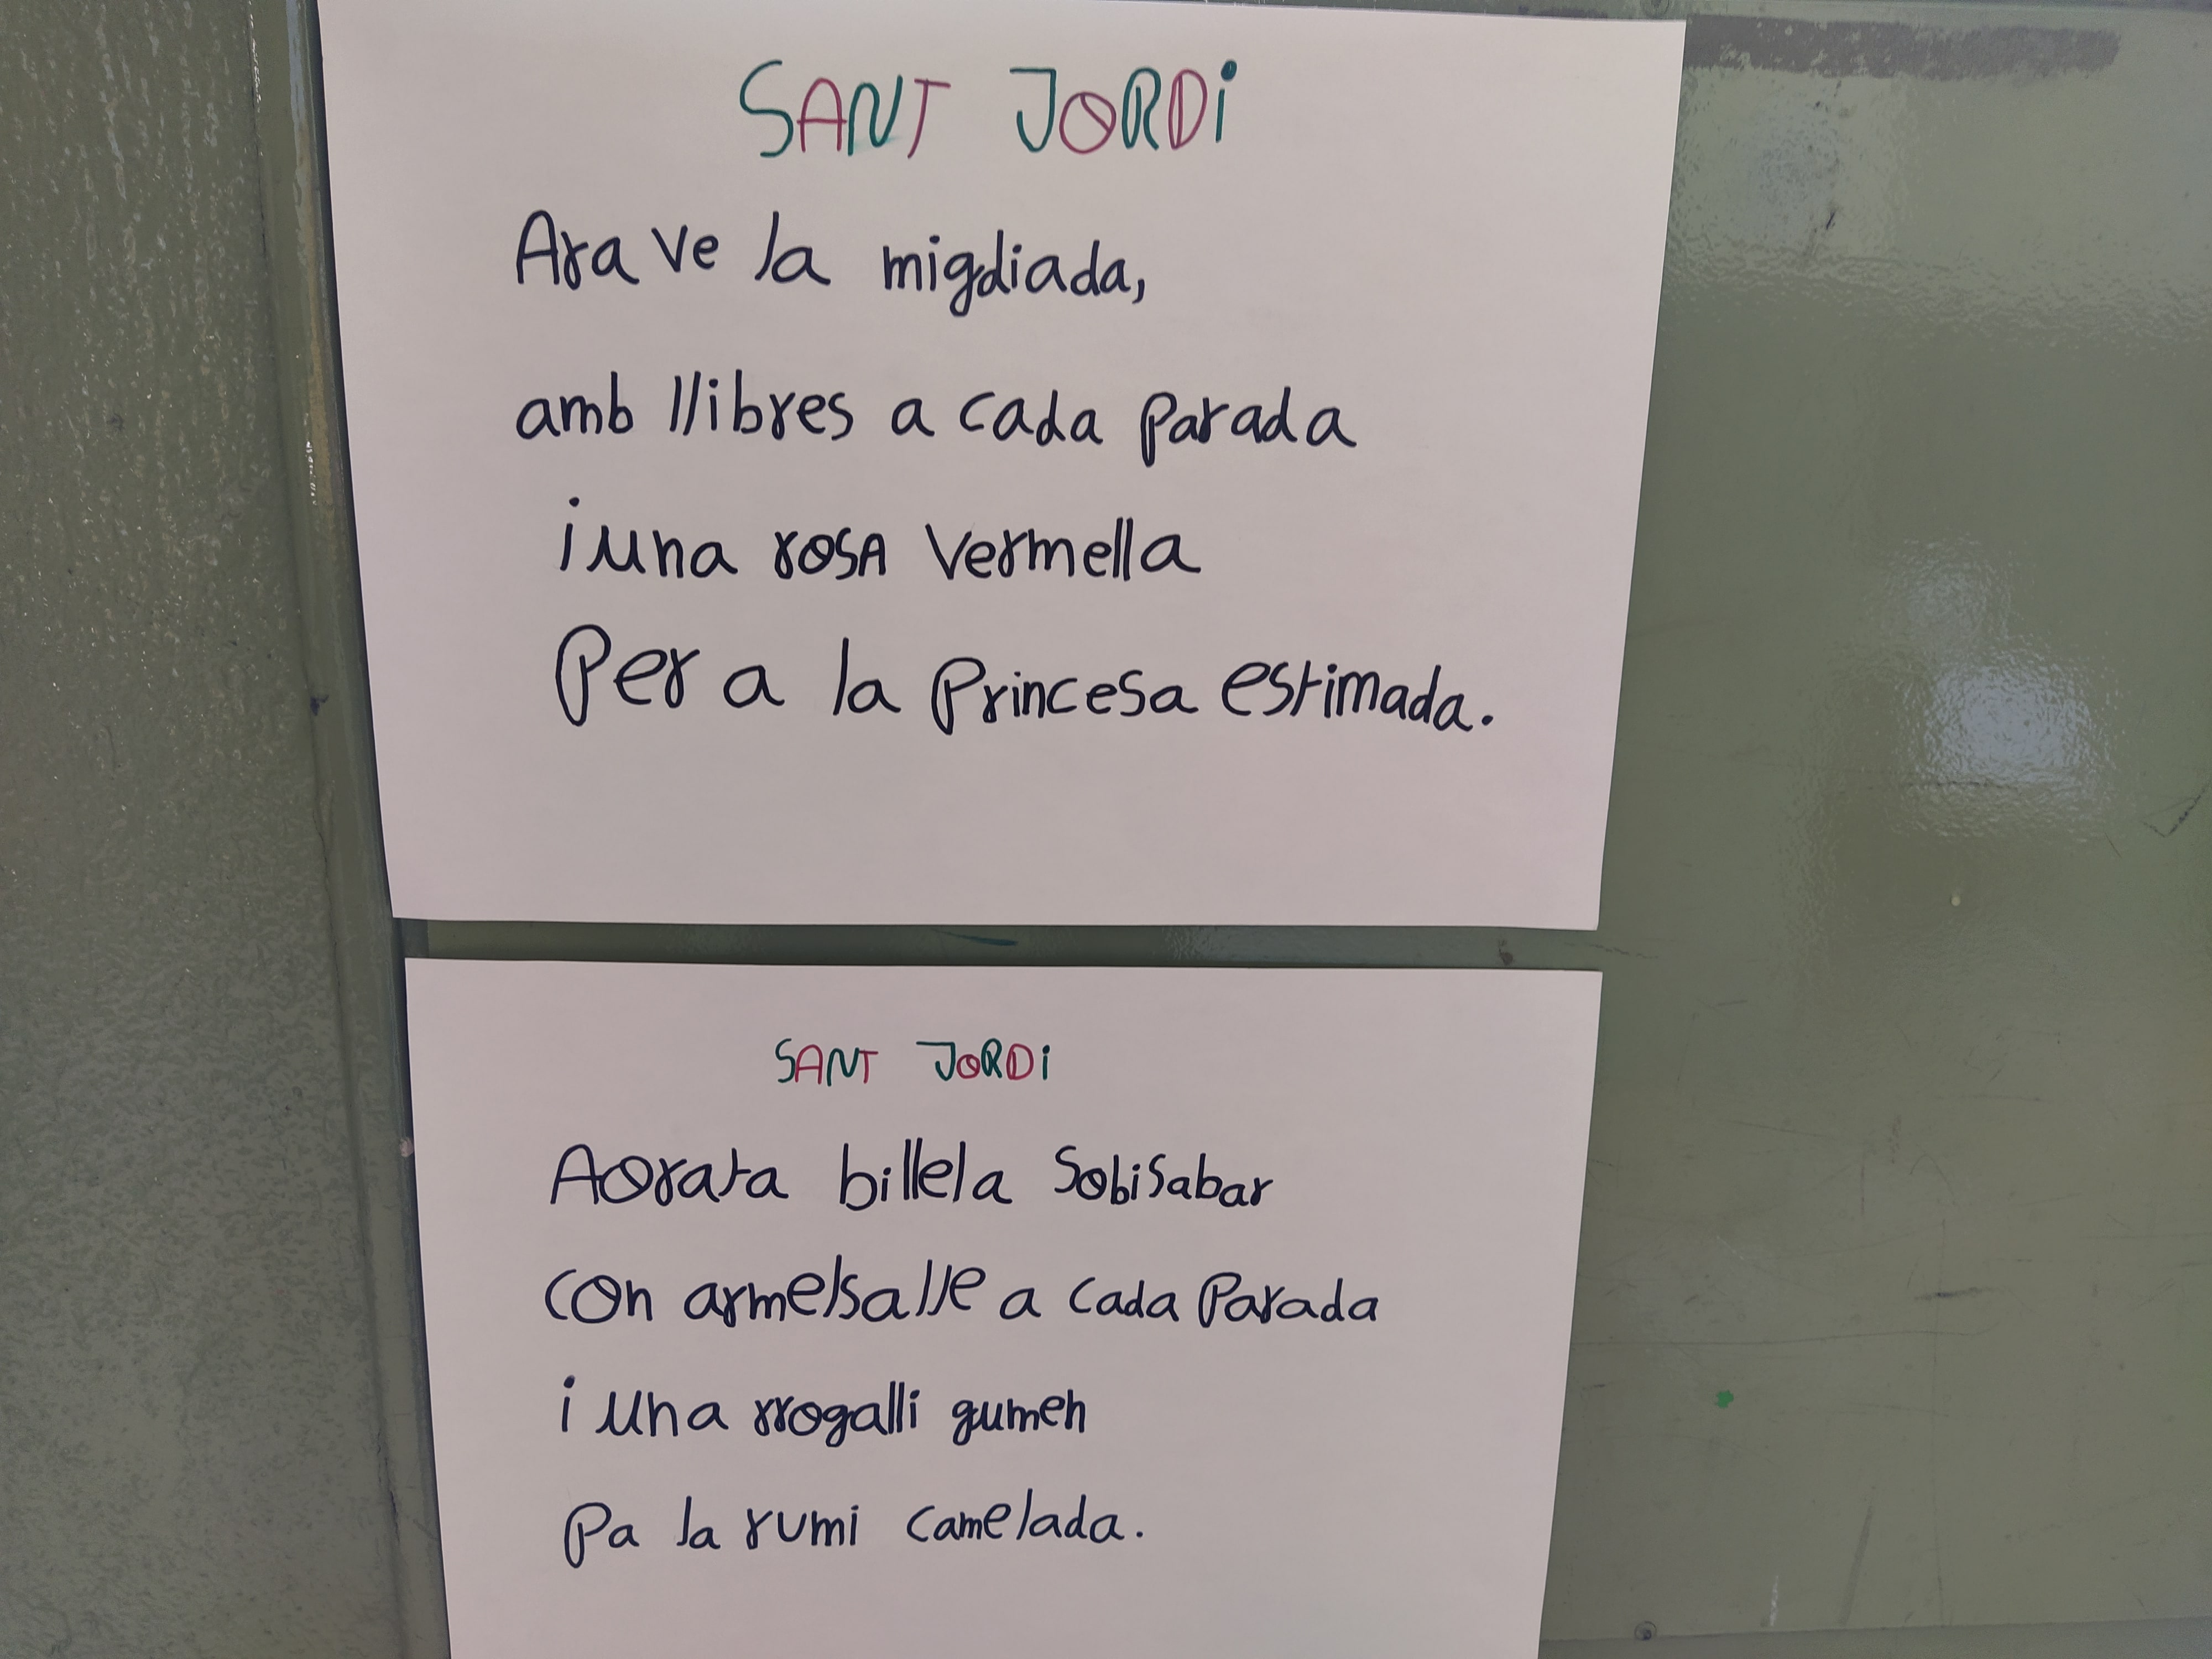 SANT JORDi
Ara ve la migdiada,
amb llibres a cada parada
i una rosa vermella
Per a la princesa estimada.
SANT JORDi
Aorata billela Sobisabar
con armelsalle a cada Parada
i una rrogalli gumeh
Pa la rumi camelada.